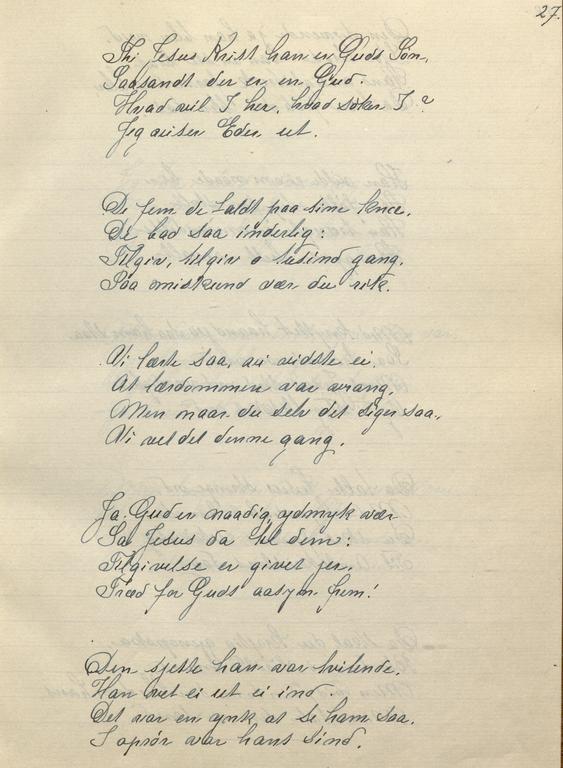 27.
Thi Jesus Krist han er Guds Søn,
Saasandt der er en Gud.
Hvad vil I her, hvad søker I?
Jeg viser Eder ut.
De fem de faldt paa sine knæ,
De bad saa inderlig:
Tilgiv, tilgiv o tusind gang,
Paa miskund vær du rik.
Vi lærte saa, vi vidste ei,
At lærdommen var vrang,
Men naar du selv det siger saa,
Vi vel det denne gang.
Ja Gud er naadig, ydmyk vær
Sa Jesus da til dem:
Tilgivelse er givet jer,
Træd for Guds aasyn frem!
Den sjette han var tvilende,
Han vet ei ut ei ind.
Det var en ynk at se ham saa,
I oprør var hans sind.